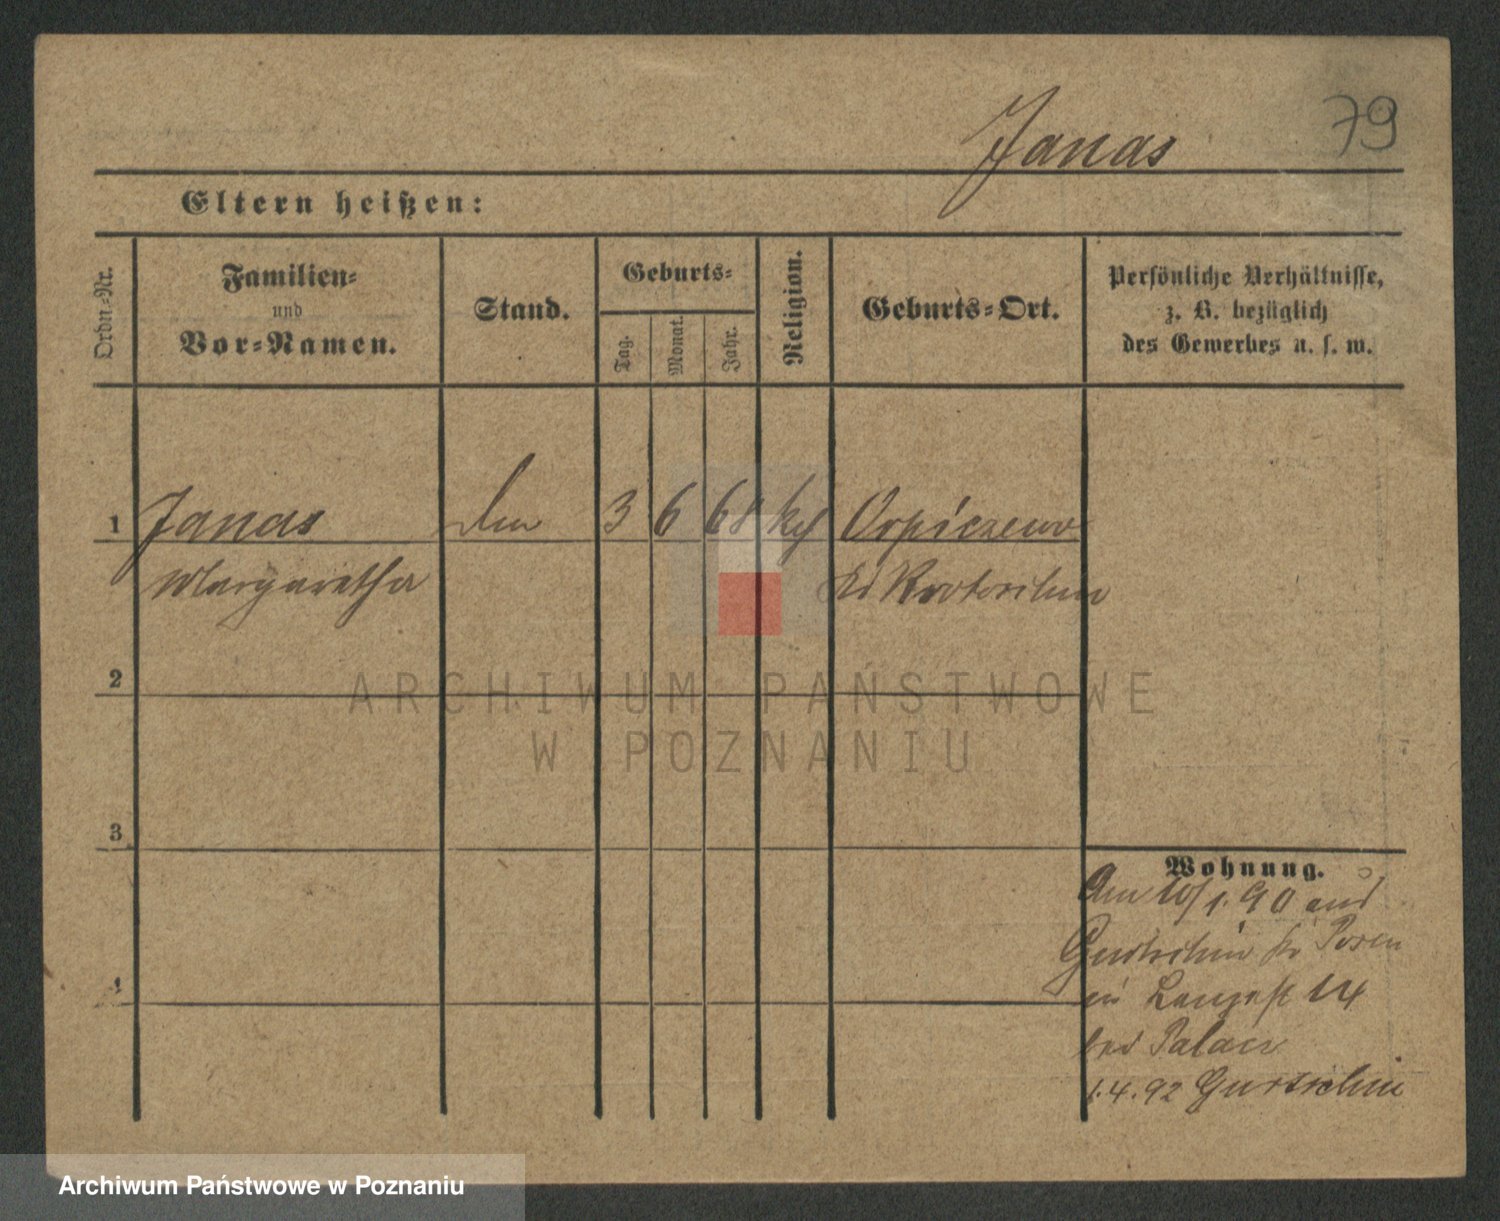 79
Janas
Eltern heißen:
Ordn.-Nr.
Familien-
und
Vor-Namen.
Stand.
Geburts-
Tag.
Monat.
Jahr.
Religion.
Geburts-Ort.
Persönliche Verhältnisse,
z. B. bezüglich
des Gewerbes u. s. w.
1 Janas 3 6 68
Margaretha
2
3
4
Wohnung.
Am 10/1. 90 aus
Gurtschin Kr Posen
in Langest 14
bei Palacz
1.4.92 Gurtschin
ARCHIWUM PAŃSTWOWE
W POZNANIU
Archiwum Państwowe w Poznaniu